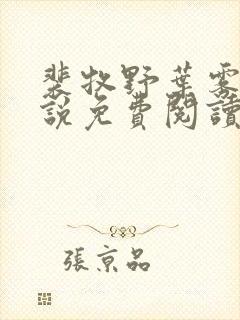 裴牧野葉雾
說免費閱讀
張京品